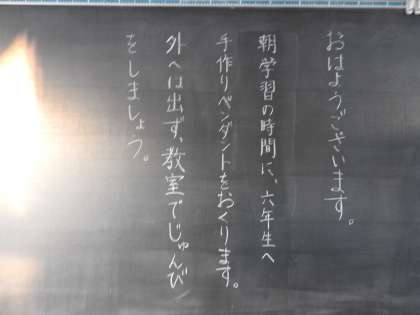 おはようございます。
朝学習の時間に、六年生へ
手作りペンダントをおくります。
外へは出ず、教室でじゅんび
をしましょう。